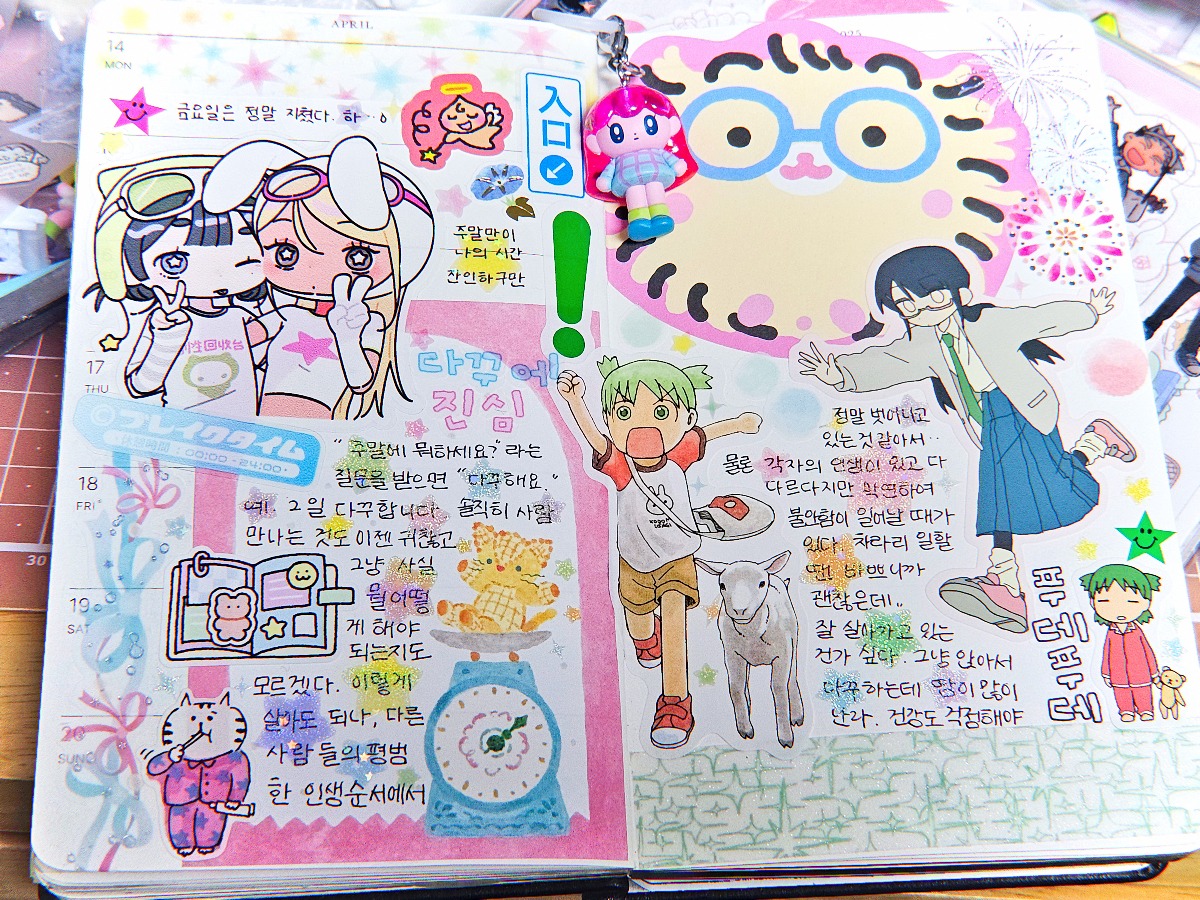 APRIL
2025
14
MON
금요일은 정말 지쳤다. 하..
入口
주말만이
나의 시간
잔인하구만
!
17
THU
다꾸에
진심
ブレイクタイム
休憩時間:00:00-24:00
18
FRI
"주말에 뭐하세요?"라는
질문을 받으면 "다꾸해요"
예. 2일 다꾸합니다. 솔직히 사람
만나는 것도 이젠 귀찮고
그냥 사실
뭘 어떻
게 해야
되는지도
모르겠다. 이렇게
살아도 되나, 다른
사람들의 평범
한 인생순서에서
19
SAT
20
SUN
30
정말 벗어나고
있는것 같아서..
물론 각자의 인생이 있고 다
다르다지만 막연하여
불안함이 일어날 때가
있다. 차라리 일할
땐 바쁘니까
괜찮은데..
잘 살아가고 있는
건가 싶다. 그냥 앉아서
다꾸하는데 땀이 많이
난라. 건강도 걱정해야